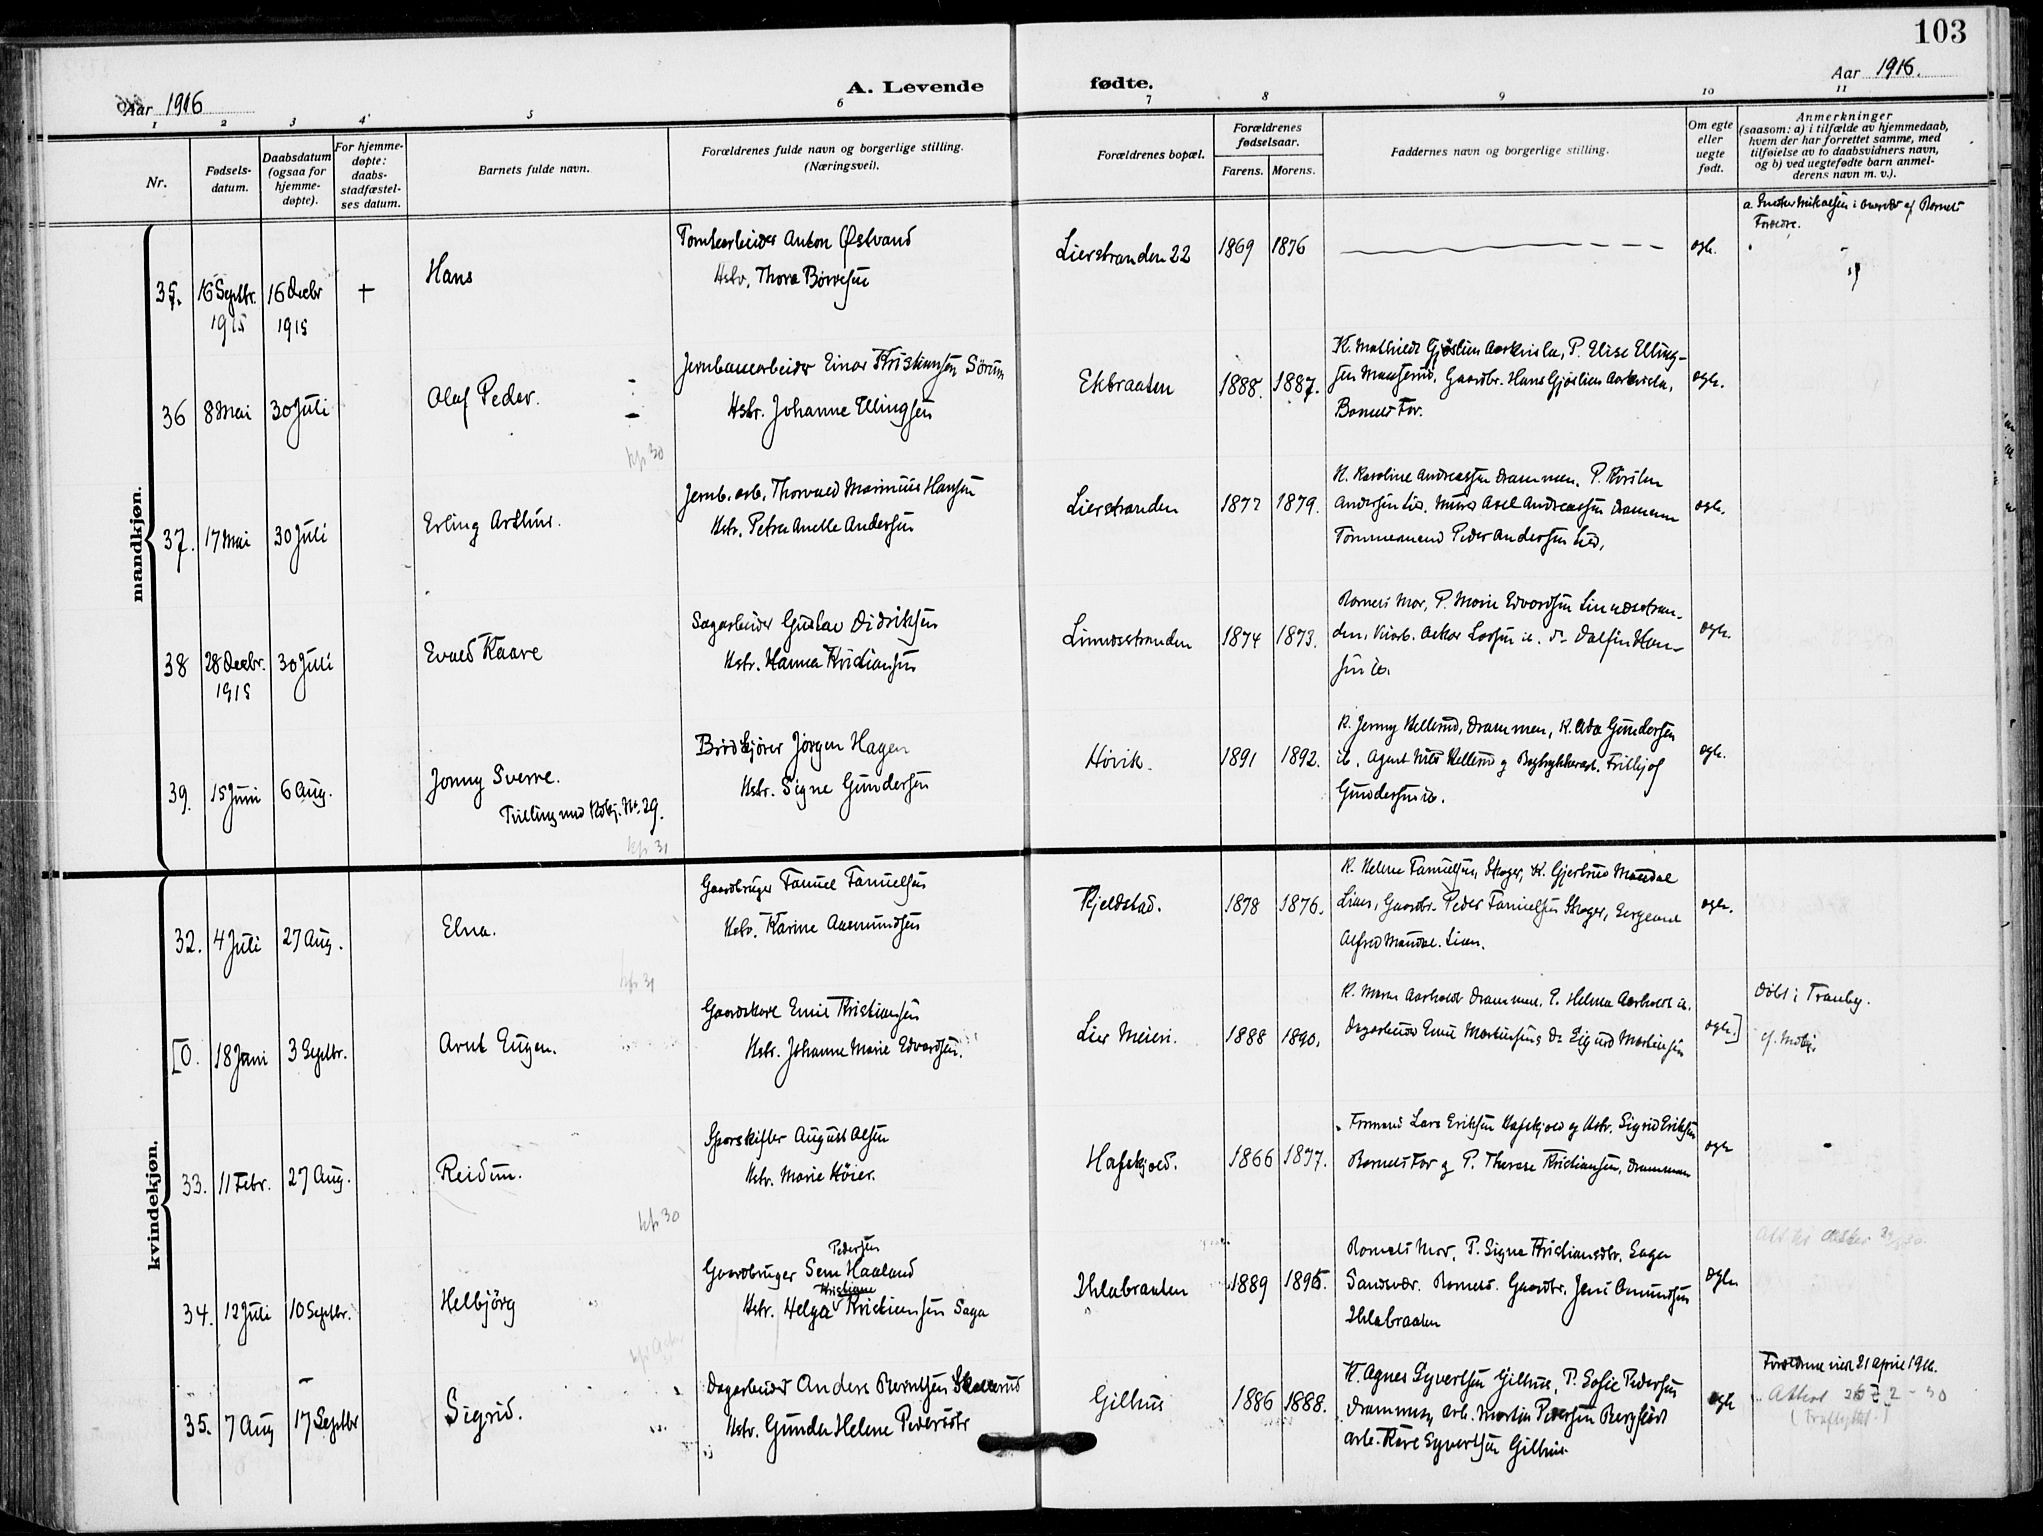 103
Aar 1916
A. Levende fødte.
Aar 1916.
1 2 3 4 5 6 7 8 9 10 11
Nr.
Fødsels-
datum.
Daabsdatum
(ogsaa for
hjemme-
døpte).
For hjemme-
døpte:
daabs-
stadfæstel-
ses datum.
Barnets fulde navn.
Forældrenes fulde navn og borgerlige stilling.
(Næringsvei).
Forældrenes bopæl.
Forældrenes
fødselsaar.
Farens. Morens.
Faddernes navn og borgerlige stilling.
Om egte
eller
uegte
født.
Anmerkninger
(saasom: a) i tilfælde av hjemmedaab,
hvem der har forrettet samme, med
tilføielse av to daabsvidners navn,
og b) ved uegtefødte barn anmel-
derens navn m. v.).
mandkjøn.
35. 16 Septbr. 1915
16 Decbr 1915
+
Hans
Tomtearbeider Anton Østvand
Hstr. Thora Børresen
Lierstranden 22
1869 1876
egte.
Forældre.
36 8 Mai 30 Juli
Olaf Peder.
Jernbanearbeider Einar Kristiansen Sørum
Hstr. Johanne Ellingsen
Ekbraaten
1888. 1887.
K. Mathilde Gjøslien Askviola, P. Elise Elling-
sen, Gaardbr. Hans Gjøslien
Barnets Far.
egte.
kfr 30
37. 17 Mai 30 Juli
Erling Arthur.
Jernb. arb. Thorvald Marinius Hansen
Hstr. Petra Anette Andersen
Lierstranden
1877 1879.
K. Karoline Andreassen Drammen, P. Kirsten
Andersen Lier, Murer Axel Andreassen Drammen
Tømmermand Peder Andersen Lier,
egte.
38 28 Decbr. 1915
30 Juli
Evald Kaare
Sagarbeider Gustav Didriksen
Hstr. Hanna Kristiansen
Linnesstranden
1874 1873.
Barnets Mor, P. Marie Edvardsen Linnesstran-
den, Oskar Larsen ib. Do Dalfin Han-
sen ib.
egte.
39. 15 Juni 6 Aug.
Jonny Sverre.
Tvilling med Kvkj. Nr. 29.
kfr 31
Brødkjører Jørgen Hagen
Hstr. Signe Gundersen
Høvik.
1891 1892.
K. Jenny Hellerud, Drammen, K. Ada Gundersen
ib, Agent Nils Hellerud og Bogtrykkerarb. Fritjof
Gundersen ib.
egte.
kvindekjøn.
32. 4 Juli 27 Aug.
Elna.
kfr 31
Gaardbruger Samuel Samuelsen
Hstr. Karine Aasmundsen
Kjeldstad.
1878 1876.
K. Helene Samuelsen, Skoger, K. Gjertrud Mandal
Lian, Gaardbr. Peder Samuelsen Skoger, Sergeant
Alfred Mandal. Lian.
egte.
[0. 18 Juni 3 Septbr.
Arnt Eugen.
Gaardskarl Emil Kristiansen
Hstr. Johanne Marie Edvardsen.
Lier Meieri.
1888 1890.
K. Maren Aarholt Drammen, P. Helma Aarholt ib.
Dagarbeider Emil Martinsen og Do Sigurd Martinsen
egte.]
Døbt i Tranby.
cf. Mdkj.
33. 11 Febr. 27 Aug.
Reidun.
kfr 30
Sporskifter August Olsen
Hstr. Marie Høier.
Hafskjold.
1866 1877.
Formand Lars Eriksen Hafskjold og Hstr. Sigrid Eriksen
Barnets Far og P. Therese Kristiansen, Drammen
egte
34. 12 Juli 10 Septbr.
Helbjørg
Pedersen
Gaardbruger Sem Haaland
Kristiane
Hstr. Helga Kristiansen Saga
Ihlebraaten
1889 1895.
Barnets Mor, P. Signe Kristiansdtr. Saga
Sandsvær. Barnets. Gaardbr. Jens Amundsen
Ihlebraaten
egte
35. 7 Aug 17 Septbr
Sigrid.
Dagarbeider Anders Berntsen Skallerud
Hstr. Gunda Helene Pedersdtr
Gilhus
1886 1888.
K. Agnes Syvertsen Gilhus, P. Sofie Pedersen
Drammen, arb. Martin Pedersen Bergflødt
arb. Kare Syvertsen Gilhus.
egte
Forældrene viet 21 april 1916.
Attest 26/2 - 30
(Utflyttet)